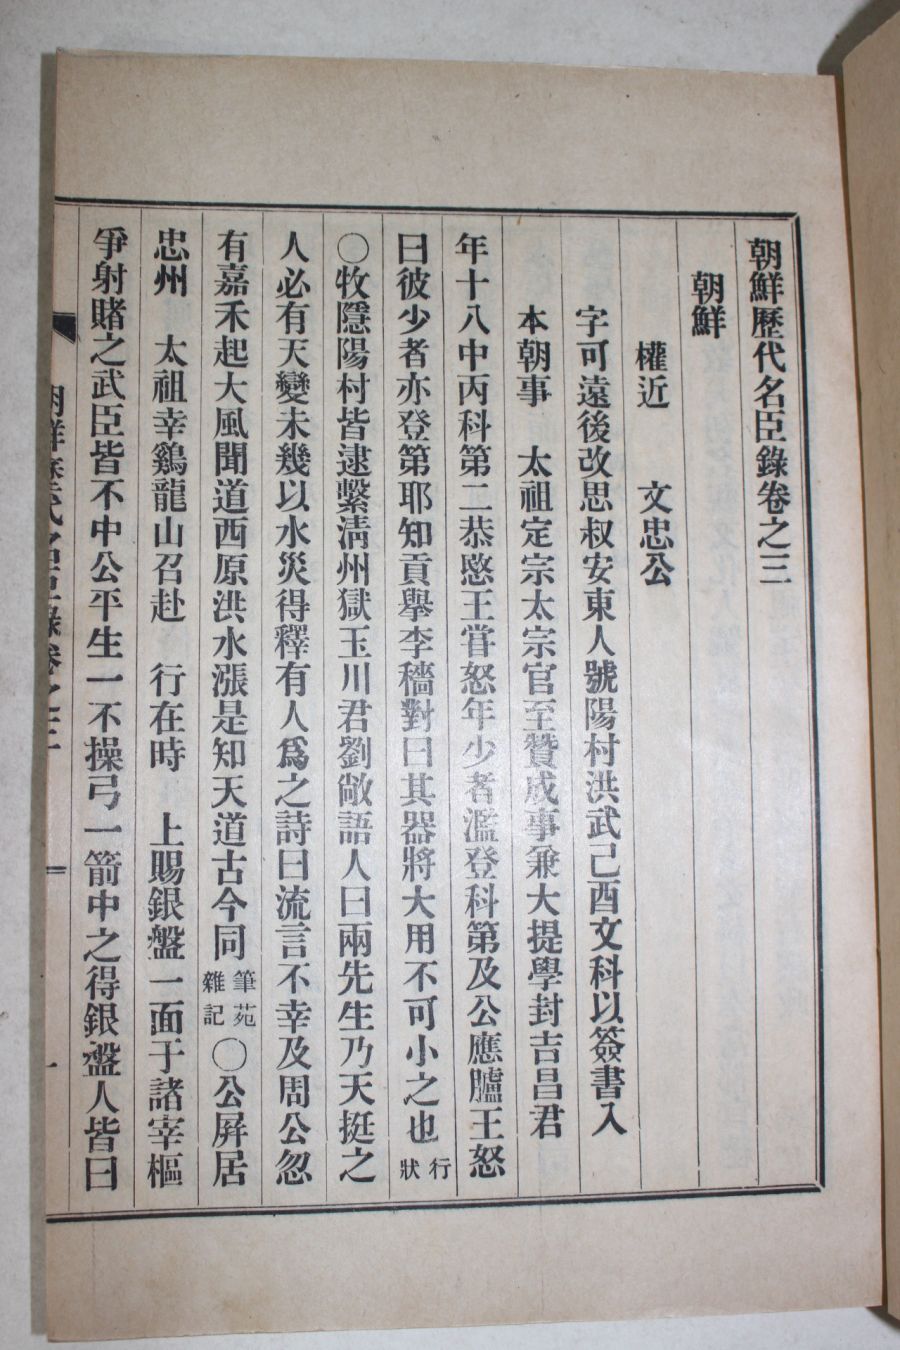 朝鮮歷代名臣錄卷之三
朝鮮
權近 文忠公
字可遠後改思叔安東人號陽村洪武己酉文科以簽書入
本朝事 太祖定宗太宗官至贊成事兼大提學封吉昌君
年十八中丙科第二恭愍王甞怒年少者濫登科第及公應臚王怒
曰彼少者亦登第耶知貢擧李穡對曰其器將大用不可小之也 行狀
〇牧隱陽村皆逮繫淸州獄玉川君劉敞語人曰兩先生乃天挺之
人必有天變未幾以水災得釋有人爲之詩曰流言不幸及周公忽
有嘉禾起大風聞道西原洪水漲是知天道古今同 筆苑雜記 〇公屛居
忠州 太祖幸鷄龍山召赴 行在時 上賜銀盤一面于諸宰樞
爭射賭之武臣皆不中公平生一不操弓一箭中之得銀盤人皆曰
朝鮮歷代名臣錄卷之三
一